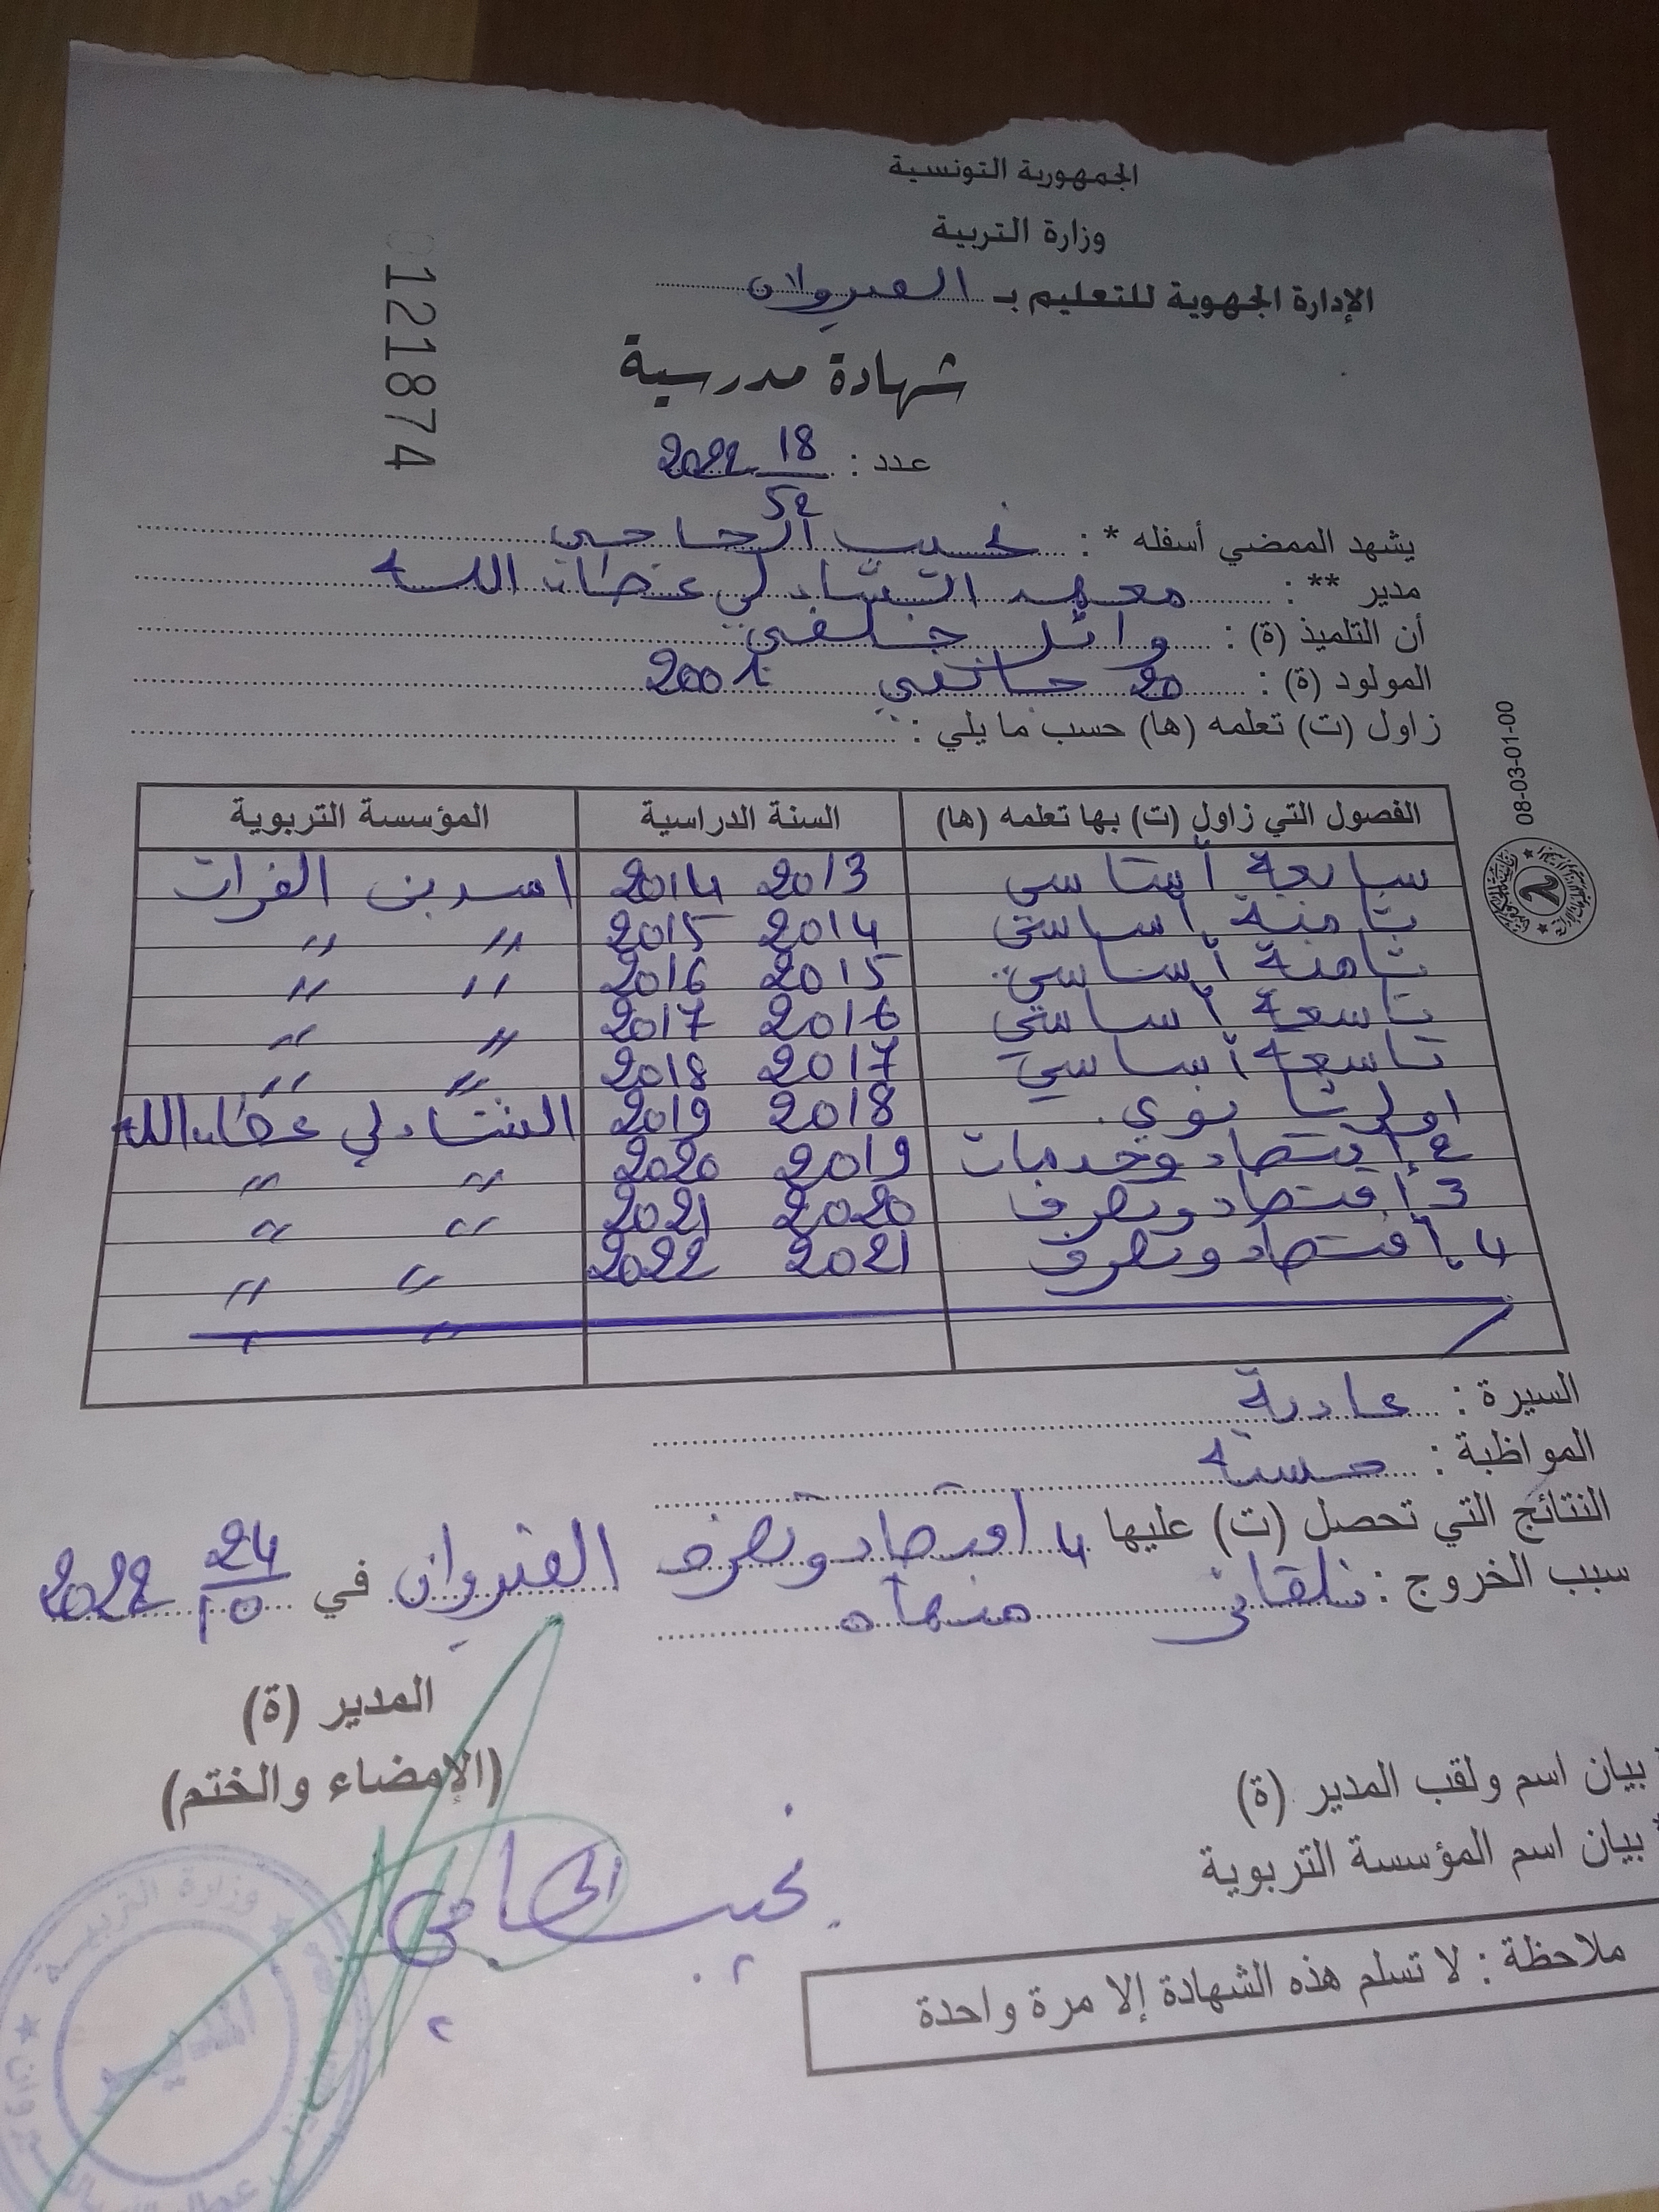 الجمهورية التونسية
وزارة التربية
الإدارة الجهوية للتعليم بـ القيروان
121874
شهادة مدرسية
عدد : 18/52 2022
يشهد الممضي أسفله * : نجيب الحاجي
مدير ** : معهد الشاذلي عطاء الله
أن التلميذ (ة) : وائل خلفي
المولود (ة) : 20 جانفي 2001
زاول (ت) تعلمه (ها) حسب ما يلي :
08-03-01-00
الفصول التي زاول (ت) بها تعلمه (ها) السنة الدراسية المؤسسة التربوية
سابعة أساسي 2013 2014 اسد بن الفرات
ثامنة أساسي 2014 2015 " "
ثامنة أساسي 2015 2016 " "
تاسعة أساسي 2016 2017 " "
تاسعة أساسي 2017 2018 " "
اولى ثانوي 2018 2019 الشاذلي عطاء الله
2 إقتصاد وخدمات 2019 2020 " "
3 إقتصاد وتصرف 2020 2021 " "
4 إقتصاد وتصرف 2021 2022 " "
" "
السيرة : عادية
المواظبة : حسنة
النتائج التي تحصل (ت) عليها 4 اقتصاد وتصرف
سبب الخروج : تلقائي
القيروان في 24/10 2022
المدير (ة)
(الإمضاء والختم)
بيان اسم ولقب المدير (ة)
بيان اسم المؤسسة التربوية
نجيب الحاجي
ملاحظة : لا تسلم هذه الشهادة إلا مرة واحدة
وزارة التربية
المدير